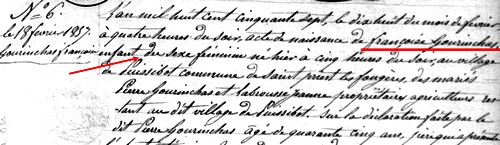 N° 6.
le 18 février 1857.
Gourinchas françoise
L'an mil huit cent cinquante sept, le dix huit du mois de février
à quatre heures du soir, acte de naissance de françoise Gourinchas
enfant de sexe féminin né hier à cinq heures du soir, au village
de Puissibot commune de Saint priest les fougères, des mariés
Pierre Gourinchas et Labrousse jeanne propriétaires agriculteurs res
tant au dit village de Puissibot. Sur la déclaration faite par le
dit Pierre Gourinchas âgé de quarante cinq ans, père